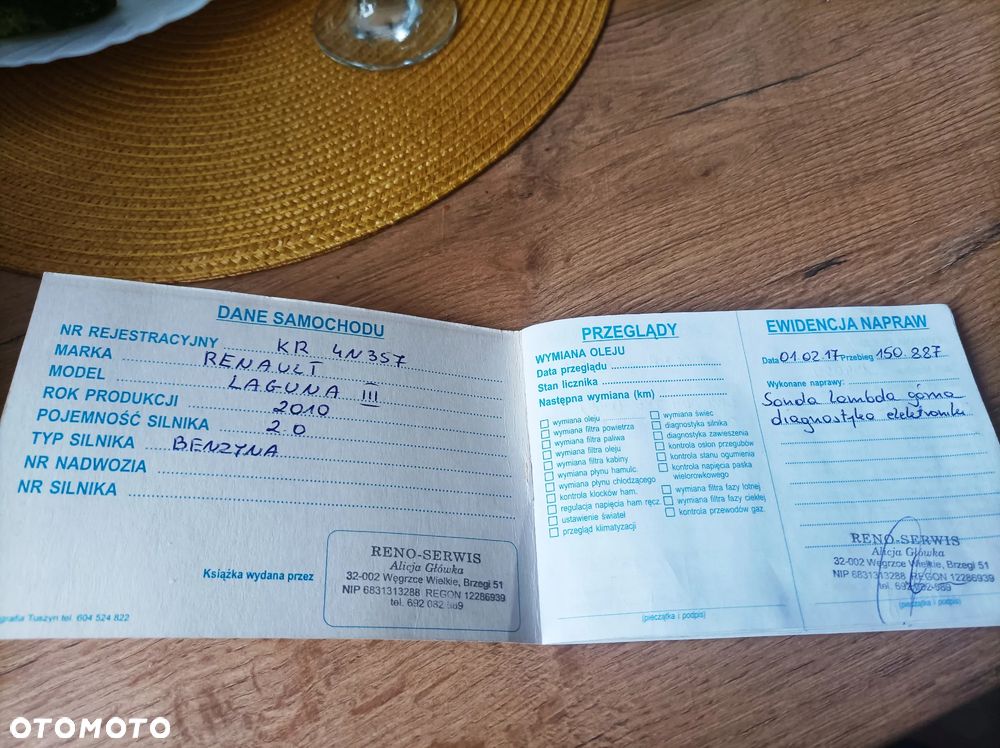 DANE SAMOCHODU
NR REJESTRACYJNY KR 4N357
MARKA RENAULT
MODEL LAGUNA III
ROK PRODUKCJI 2010
POJEMNOŚĆ SILNIKA 2.0
TYP SILNIKA BENZYNA
NR NADWOZIA
NR SILNIKA
Książka wydana przez
RENO-SERWIS
Alicja Główka
32-002 Węgrzce Wielkie, Brzegi 51
NIP 6831313288 REGON 12286939
tel. 692 082 889
grafia Tuszyn tel. 604 524 822
PRZEGLĄDY
WYMIANA OLEJU
Data przeglądu
Stan licznika
Następna wymiana (km)
wymiana oleju
wymiana filtra powietrza
wymiana filtra paliwa
wymiana filtra oleju
wymiana filtra kabiny
wymiana płynu hamulc.
wymiana płynu chłodzącego
kontrola klocków ham.
regulacja napięcia ham ręcz.
ustawienie świateł
przegląd klimatyzacji
wymiana świec
diagnostyka silnika
diagnostyka zawieszenia
kontrola osłon przegubów
kontrola stanu ogumienia
kontrola napięcia paska
wielorowkowego
wymiana filtra fazy lotnej
wymiana filtra fazy ciekłej
kontrola przewodów gaz.
(pieczątka i podpis)
EWIDENCJA NAPRAW
Data 01.02.17 Przebieg 150.887
Wykonane naprawy:
Sonda lambda górna
diagnostyka elektroniki
RENO-SERWIS
Alicja Główka
32-002 Węgrzce Wielkie, Brzegi 51
NIP 6831313288 REGON 12286939
tel. 692 082 889
(pieczątka i podpis)
OTOMOTO